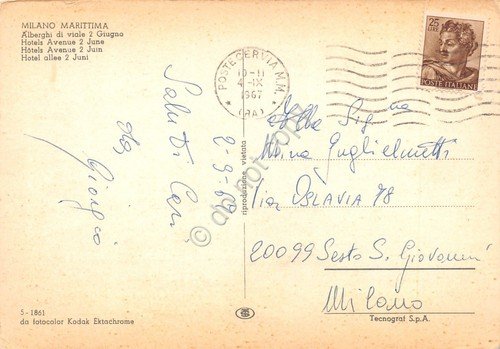 MILANO MARITTIMA
Alberghi di viale 2 Giugno
Hotels Avenue 2 June
Hôtels Avenue 2 Juin
Hotel allee 2 Juni
Saluti Cari
da Giorgio
2-9-67
5-1861
da fotocolor Kodak Ektachrome
riproduzione vietata
POSTE CERVIA M.M.
10-11
4-IX
1967
(RA)
25
LIRE
POSTE ITALIANE
Alla Sig.na
Mina Guglielmetti
Via OSLAVIA 78
20099 Sesto S. Giovanni
Milano
Tecnograf S.p.A.